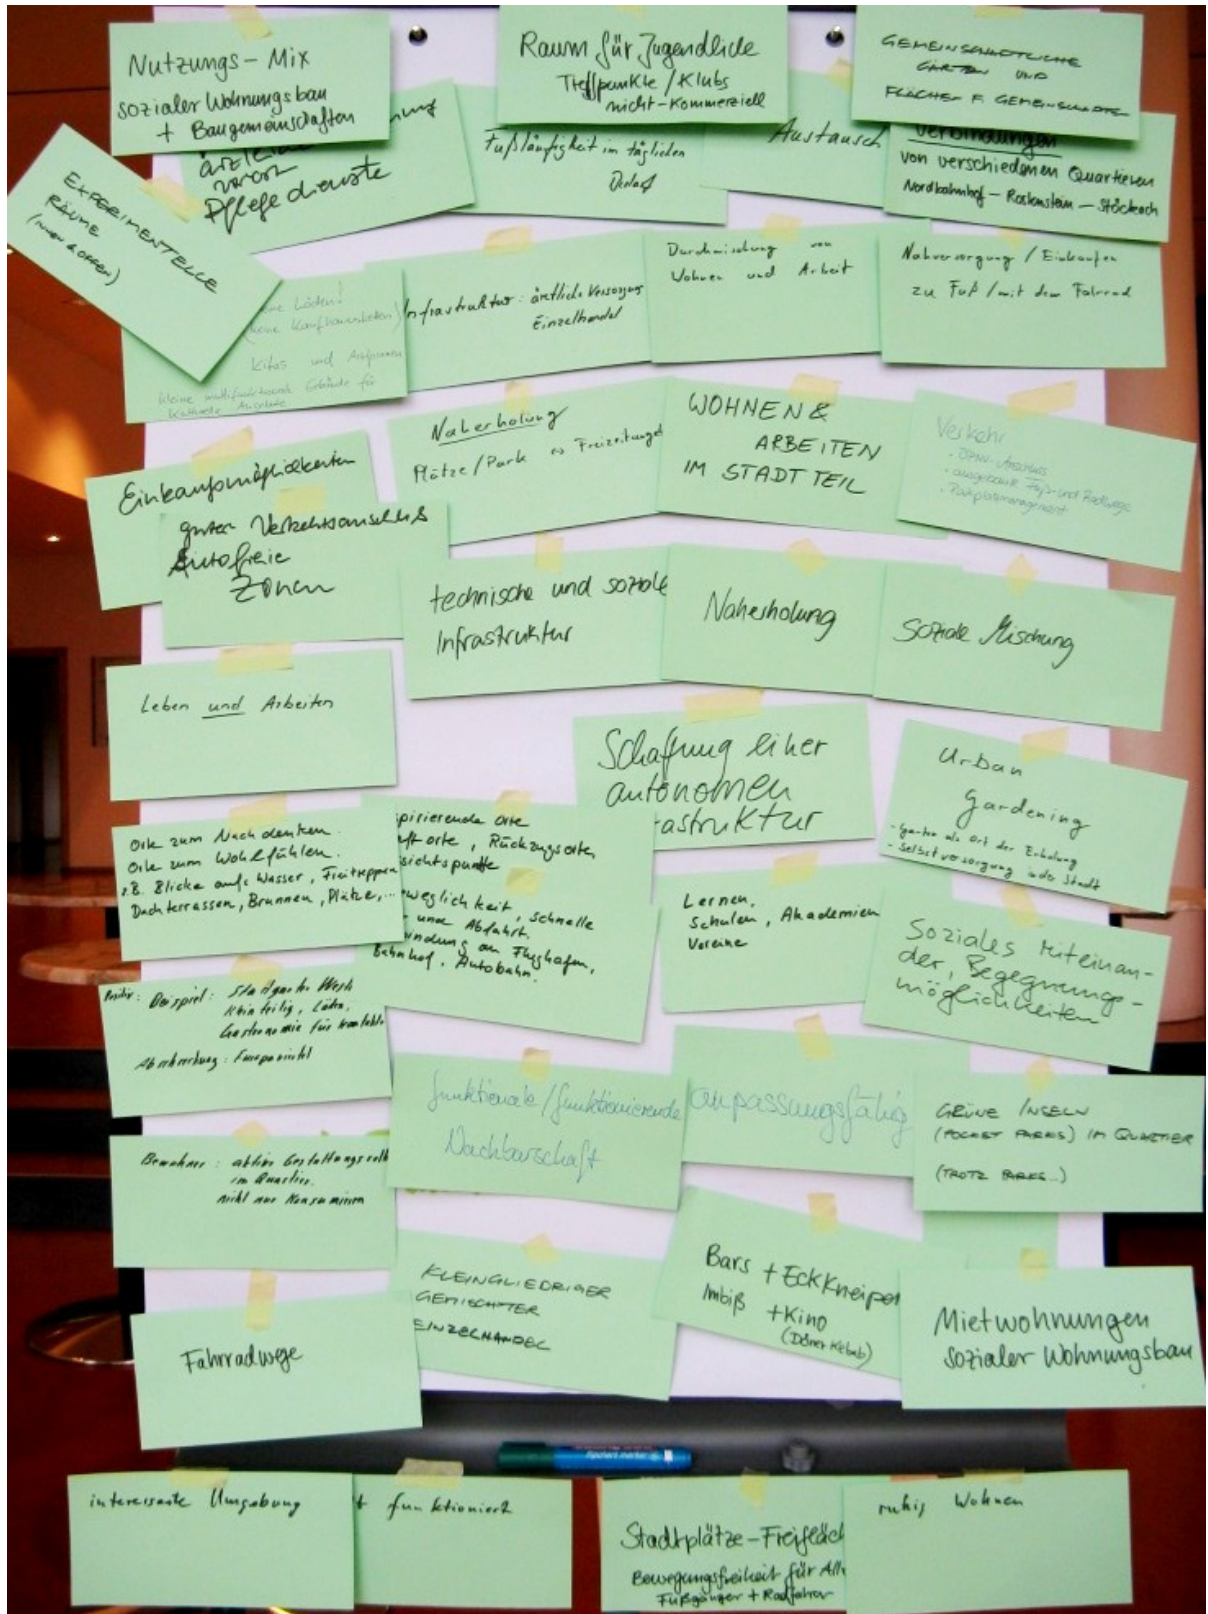 Nutzungs-Mix
sozialer Wohnungsbau
+ Baugemeinschaften
Raum für Jugendliche
Treffpunkte / Klubs
nicht-kommerziell
GEMEINSCHAFTLICHE
GÄRTEN UND
FLÄCHEN F.
EXPERIMENTELLE
RÄUME
(INNEN & OFFEN)
vorort
Pflegedienste
Fußläufigkeit im täglichen
Austausch
Verbindungen
von verschiedenen Quartieren
Nordbahnhof – Rosenstein – Stöckach
Läden!
Kitas und
kleine multifunktionale Gebäude für
kulturelle Angebote
Infrastruktur: ärztliche Versorgung
Einzelhandel
Durchmischung von
Wohnen und Arbeit
Nahversorgung / Einkaufen
zu Fuß / mit dem Fahrrad
Einkaufsmöglichkeiten
guter Verkehrsanschluß
Autofreie
Zonen
Naherholung
Plätze / Park
WOHNEN &
ARBEITEN
IM STADTTEIL
Verkehr
- ÖPNV-Anschluss
- ausgebaute Fuß- und Radwege
- Parkplatzmanagement
technische und soziale
Infrastruktur
Naherholung
Soziale Mischung
Leben und Arbeiten
Schaffung einer
autonomen
rastruktur
Urban
Gardening
- Garten als Ort der Erholung
- Selbstversorgung in der Stadt
Orte zum Nachdenken.
Orte zum Wohlfühlen.
z.B. Blicke aufs Wasser, Freitreppen
Dachterrassen, Brunnen, Plätze,...
pirierende Orte
ft orte, Rückzugsorte,
sichtspunkte
weglichkeit, schnelle
und Abfahrt.
indung an Flughafen,
Bahnhof, Autobahn.
Lernen,
Schulen, Akademien
Vereine
Soziales Miteinan-
der, Begegnungs-
möglichkeiten
Positiv: Beispiel:
Kleinteilig, Läden,
Gastronomie für
Abschreckung: Europaviertel
funktionale / funktionierende
Nachbarschaft
anpassungsfähig
GRÜNE INSELN
(POCKET PARKS) IM QUARTIER
(TROTZ PARKS...)
Bewohner: aktive Gestaltungsrolle
im Quartier.
nicht nur Konsumieren
KLEINGLIEDRIGER
GEMISCHTER
EINZELHANDEL
Bars + Eckkneipen
Imbiß + Kino
(Döner Kebab)
Mietwohnungen
sozialer Wohnungsbau
Fahrradwege
interessante Umgebung
t funktioniert
Stadtplätze – Freifläch
Bewegungsfreiheit für Alle
Fußgänger + Radfahrer
ruhig Wohnen